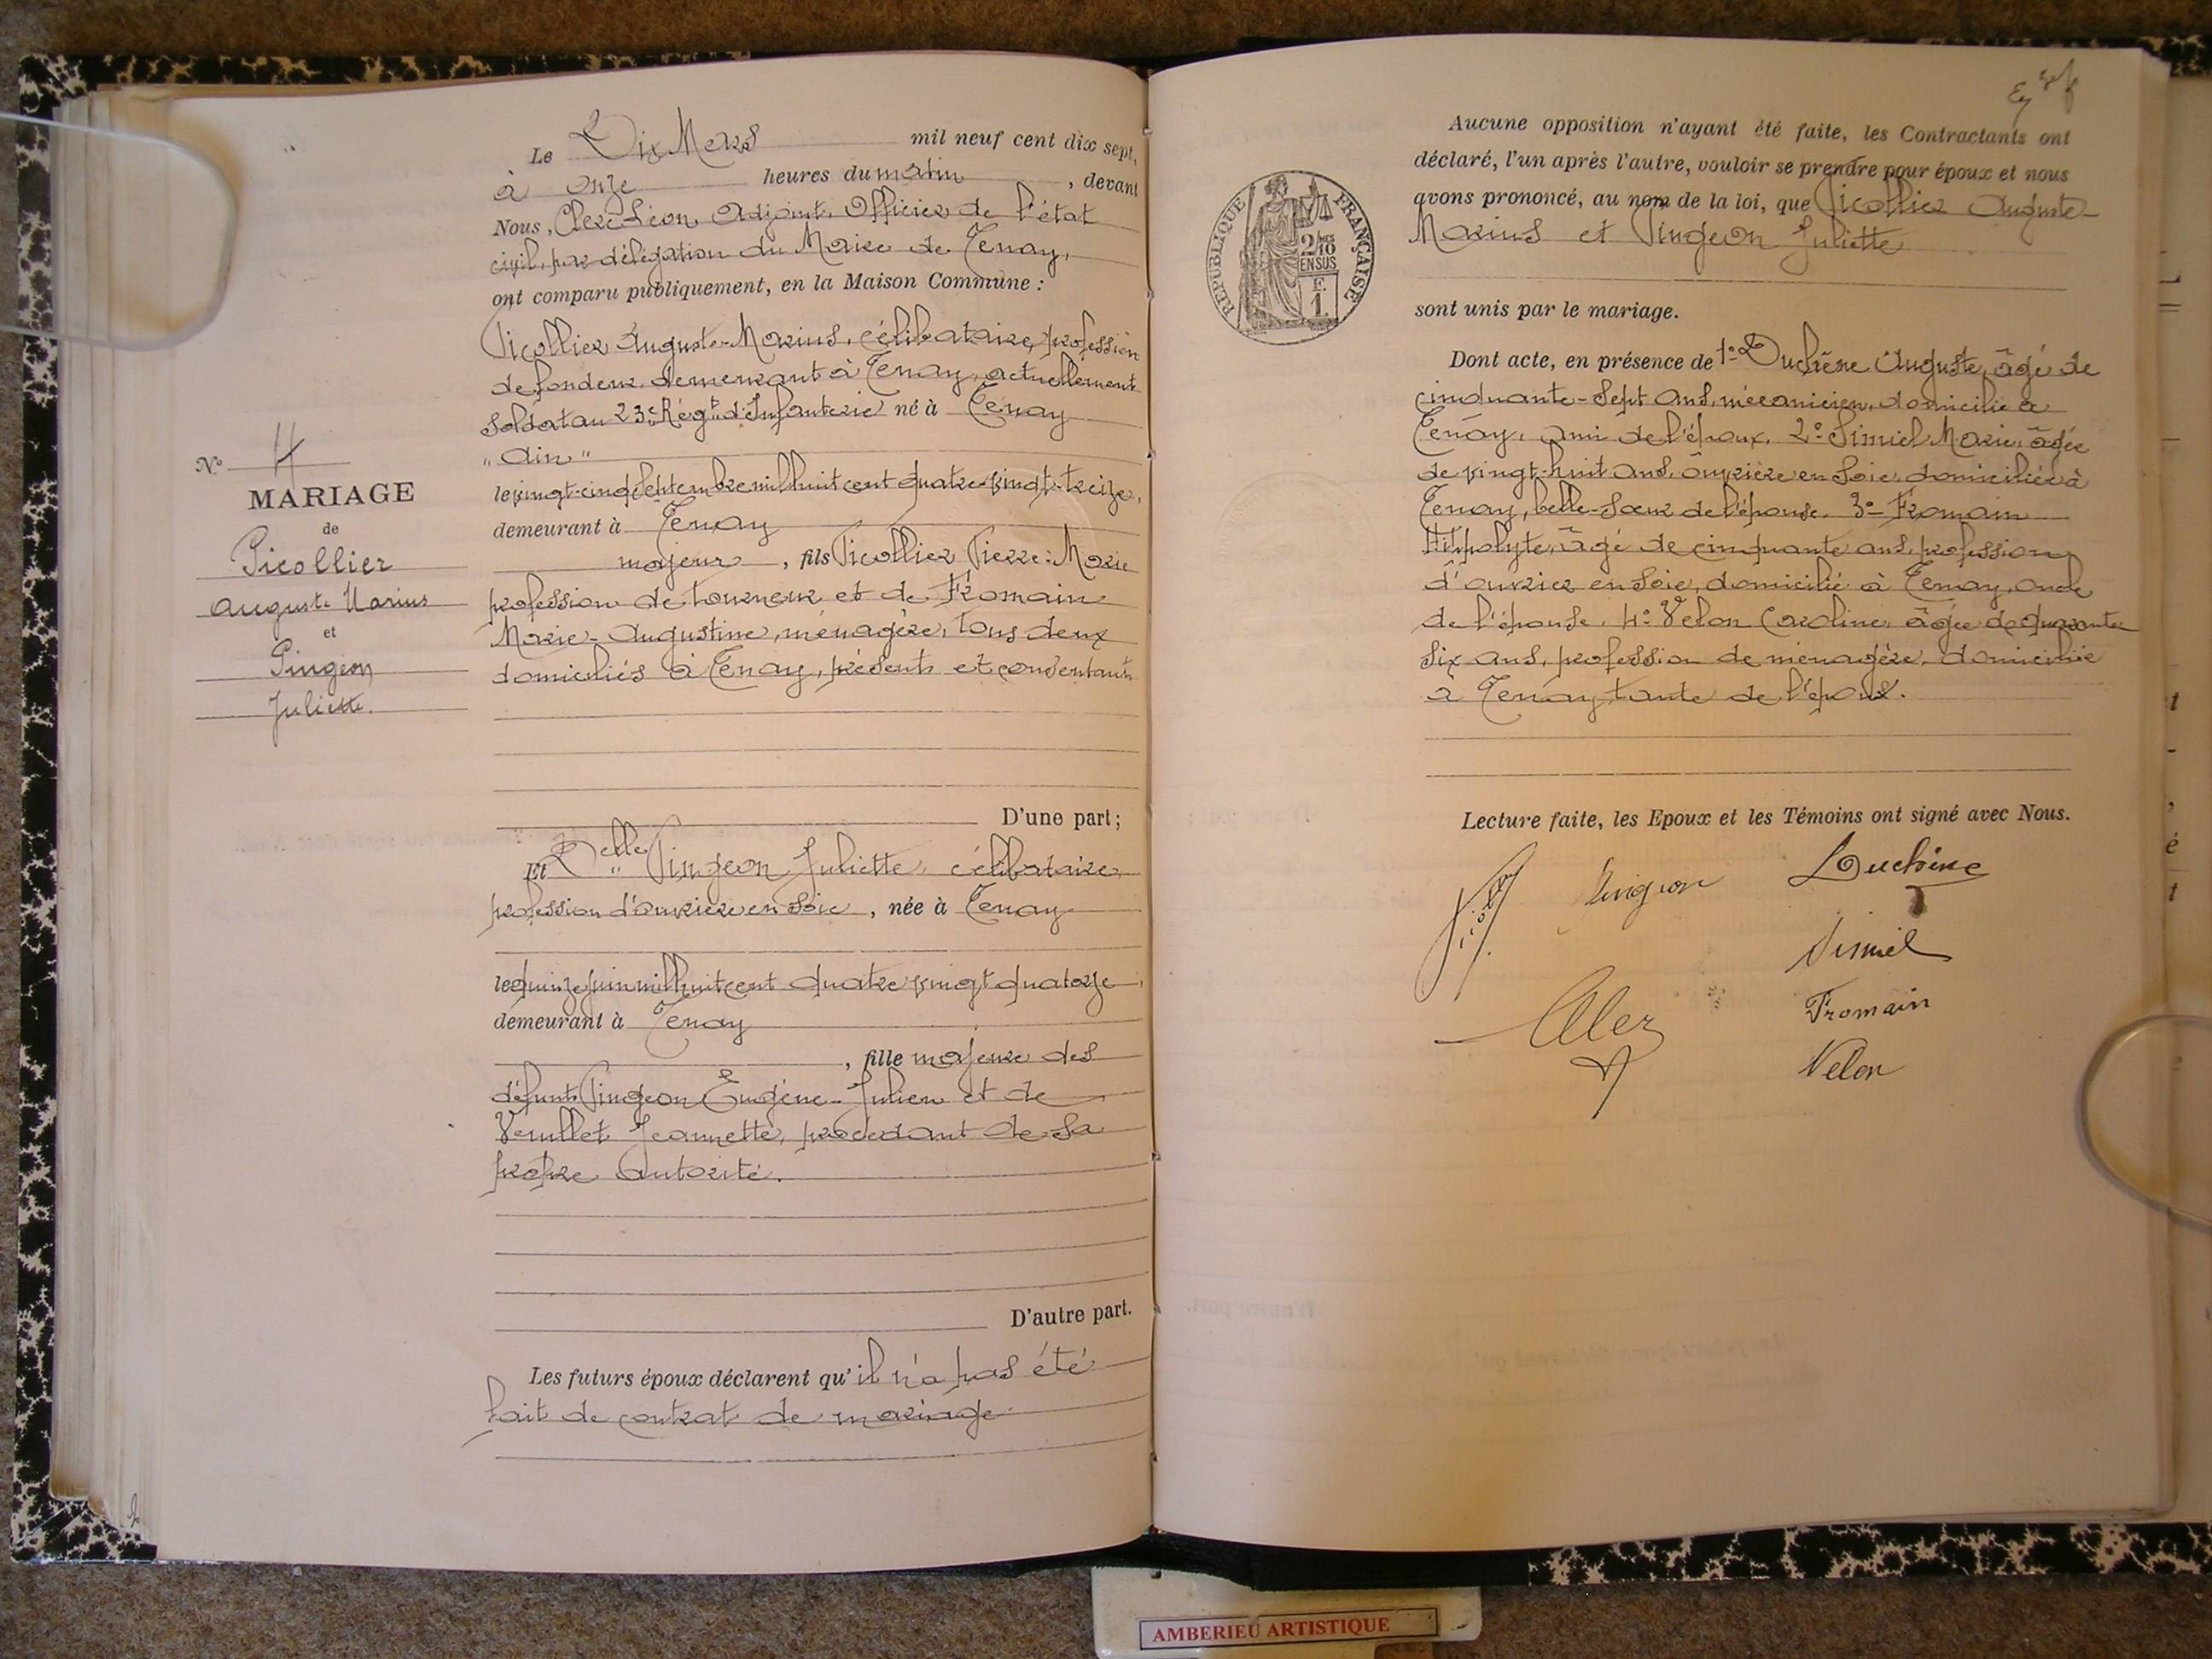 N° 4
MARIAGE
de
Picollier
Auguste Marius
et
Pingeon
Juliette.
Le Dix Mars mil neuf cent dix sept,
à onze heures du matin, devant
Nous, Clerc Léon, Adjoint, Officier de l'état
civil, par délégation du Maire de Tenay,
ont comparu publiquement, en la Maison Commune :
Picollier Auguste-Marius, célibataire, profession
de fondeur, demeurant à Tenay, actuellement
soldat au 23e Régt d'Infanterie né à Tenay
"Ain"
le vingt-cinq Septembre mil huit cent quatre-vingt-treize,
demeurant à Tenay
majeur, fils Picollier Pierre-Marie
profession de tourneur et de Fromain
Marie-Augustine, ménagère, tous deux
domiciliés à Tenay, présents et consentants
D'une part;
Et Delle Pingeon Juliette, célibataire,
profession d'ouvrière en soie, née à Tenay
le quinze juin mil huit cent quatre vingt quatorze,
demeurant à Tenay
, fille majeure des
défunts Pingeon Eugène-Julien et de
Vernllet Jeannette, procédant de sa
propre autorité.
D'autre part.
Les futurs époux déclarent qu'il n'a pas été
fait de contrat de mariage
Aucune opposition n'ayant été faite, les Contractants ont
déclaré, l'un après l'autre, vouloir se prendre pour époux et nous
avons prononcé, au nom de la loi, que Picollier Auguste
Marius et Pingeon Juliette
sont unis par le mariage.
RÉPUBLIQUE FRANÇAISE
2/10
EN SUS
F.
1.
Dont acte, en présence de 1° Duchêne Auguste, âgé de
cinquante-sept ans, mécanicien, domicilié à
Tenay, ami de l'époux. 2° Simiel Marie, âgée
de vingt-huit ans, ouvrière en soie, domiciliée à
Tenay, belle-sœur de l'épouse. 3° Fromain
Hippolyte, âgé de cinquante ans, profession
d'ouvrier en soie, domicilié à Tenay, oncle
de l'épouse. 4° Velon Caroline, âgée de quarante
six ans, profession de ménagère, domiciliée
à Tenay, tante de l'époux.
Lecture faite, les Epoux et les Témoins ont signé avec Nous.
Pingeon
Duchêne
Simiel
Fromain
Clerc
Velon
AMBERIEU ARTISTIQUE